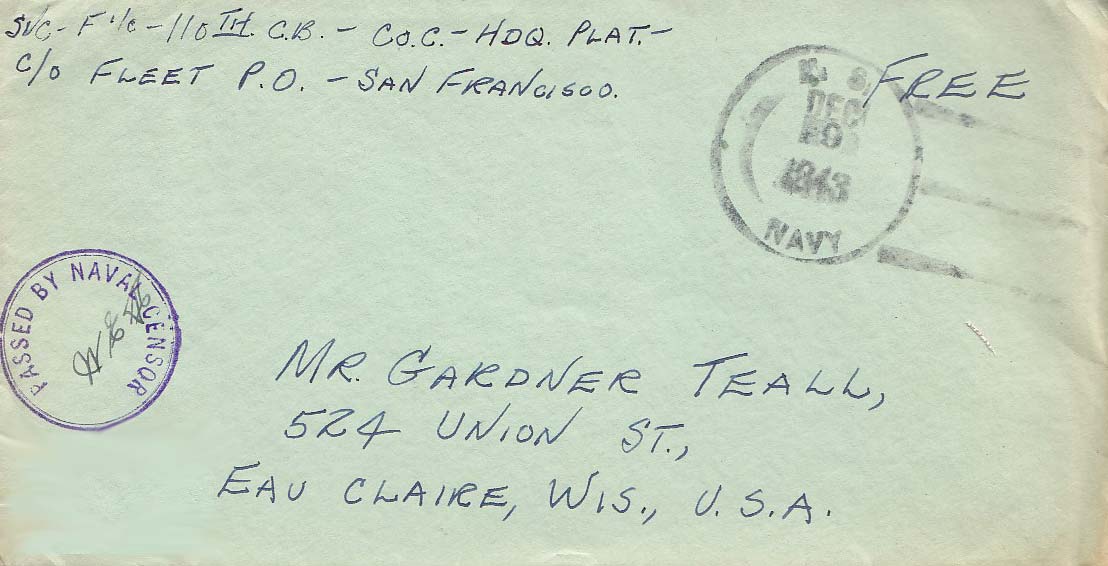 SVC - F 1/c - 110 TH. C.B. - CO. C. - HDQ. PLAT. -
C/O FLEET P.O. - SAN FRANCISCO.
FREE
U. S.
DEC
1943
NAVY
PASSED BY NAVAL CENSOR
MR. GARDNER TEALL,
524 UNION ST.,
EAU CLAIRE, WIS., U.S.A.